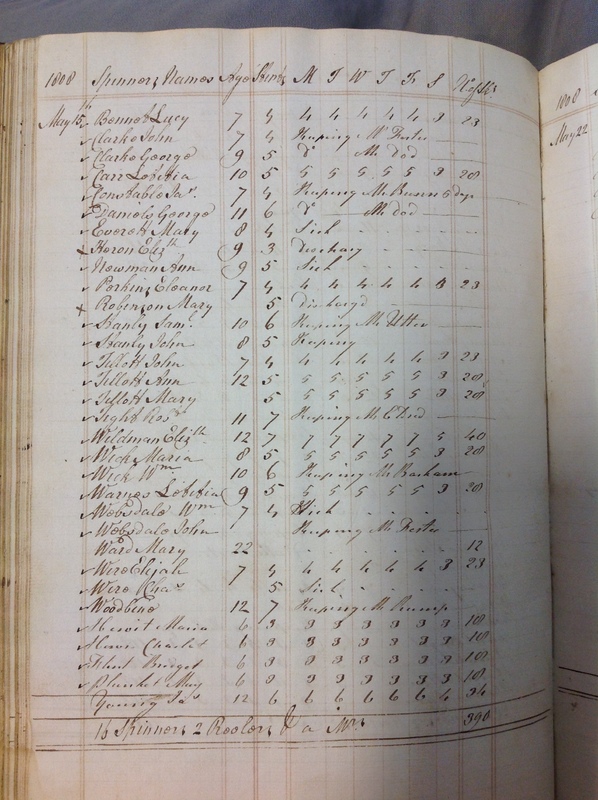 1808 Spinners Names Age Stint M T W T F S
May 15th Bennet Lucy 7 4 4 4 4 4 4 3 23
Clarke John 7 4 Keeping Mr
Clarke George 9 5 Do Mr Dod
Carr Letitia 10 5 5 5 5 5 5 3 28
Constable Jas. 7 4 Keeping Mr 6 days
Daniels George 11 6 Do Mr Dod
Everett Mary 8 4 Sick
Heron Elizth 9 3 Discharg
Newman Ann 9 5 Sick
Perkins Eleanor 7 4 4 4 4 4 4 3 23
Robinson Mary 5 Discharg'd
Stanly Saml. 10 6 Keeping Mr
Stanly John 8 5 Keeping
Tillott John 7 4 4 4 4 4 4 3 23
Tillott Ann 12 5 5 5 5 5 5 3 28
Tillott Mary 5 5 5 5 5 5 3 28
Tight 11 7 Keeping Mr
Wildman Elizth 12 7 7 7 7 7 7 5 40
Wick Maria 8 5 5 5 5 5 5 3 28
Wick Wm 10 6 Keeping Mr Barham
Warnes Letitia 9 5 5 5 5 5 5 3 28
Websdale Wm 7 4 Sick
Websdale John Keeping Mr
Ward Mary 22 12
Were Elijah 7 4 4 4 4 4 4 3 23
Were Chas 5 Sick
Woodbine 12 7 Keeping Mr Rump
Hewit Maria 6 3 3 3 3 3 3 3 18
Howe Charlt 6 3 3 3 3 3 3 3 18
Bridget 6 3 3 3 3 3 3 3 18
Plunket May 6 3 3 3 3 3 3 3 18
Young Jas 12 6 6 6 6 6 6 4 34
16 Spinners 2 Reelers & a 390
1808
May 22